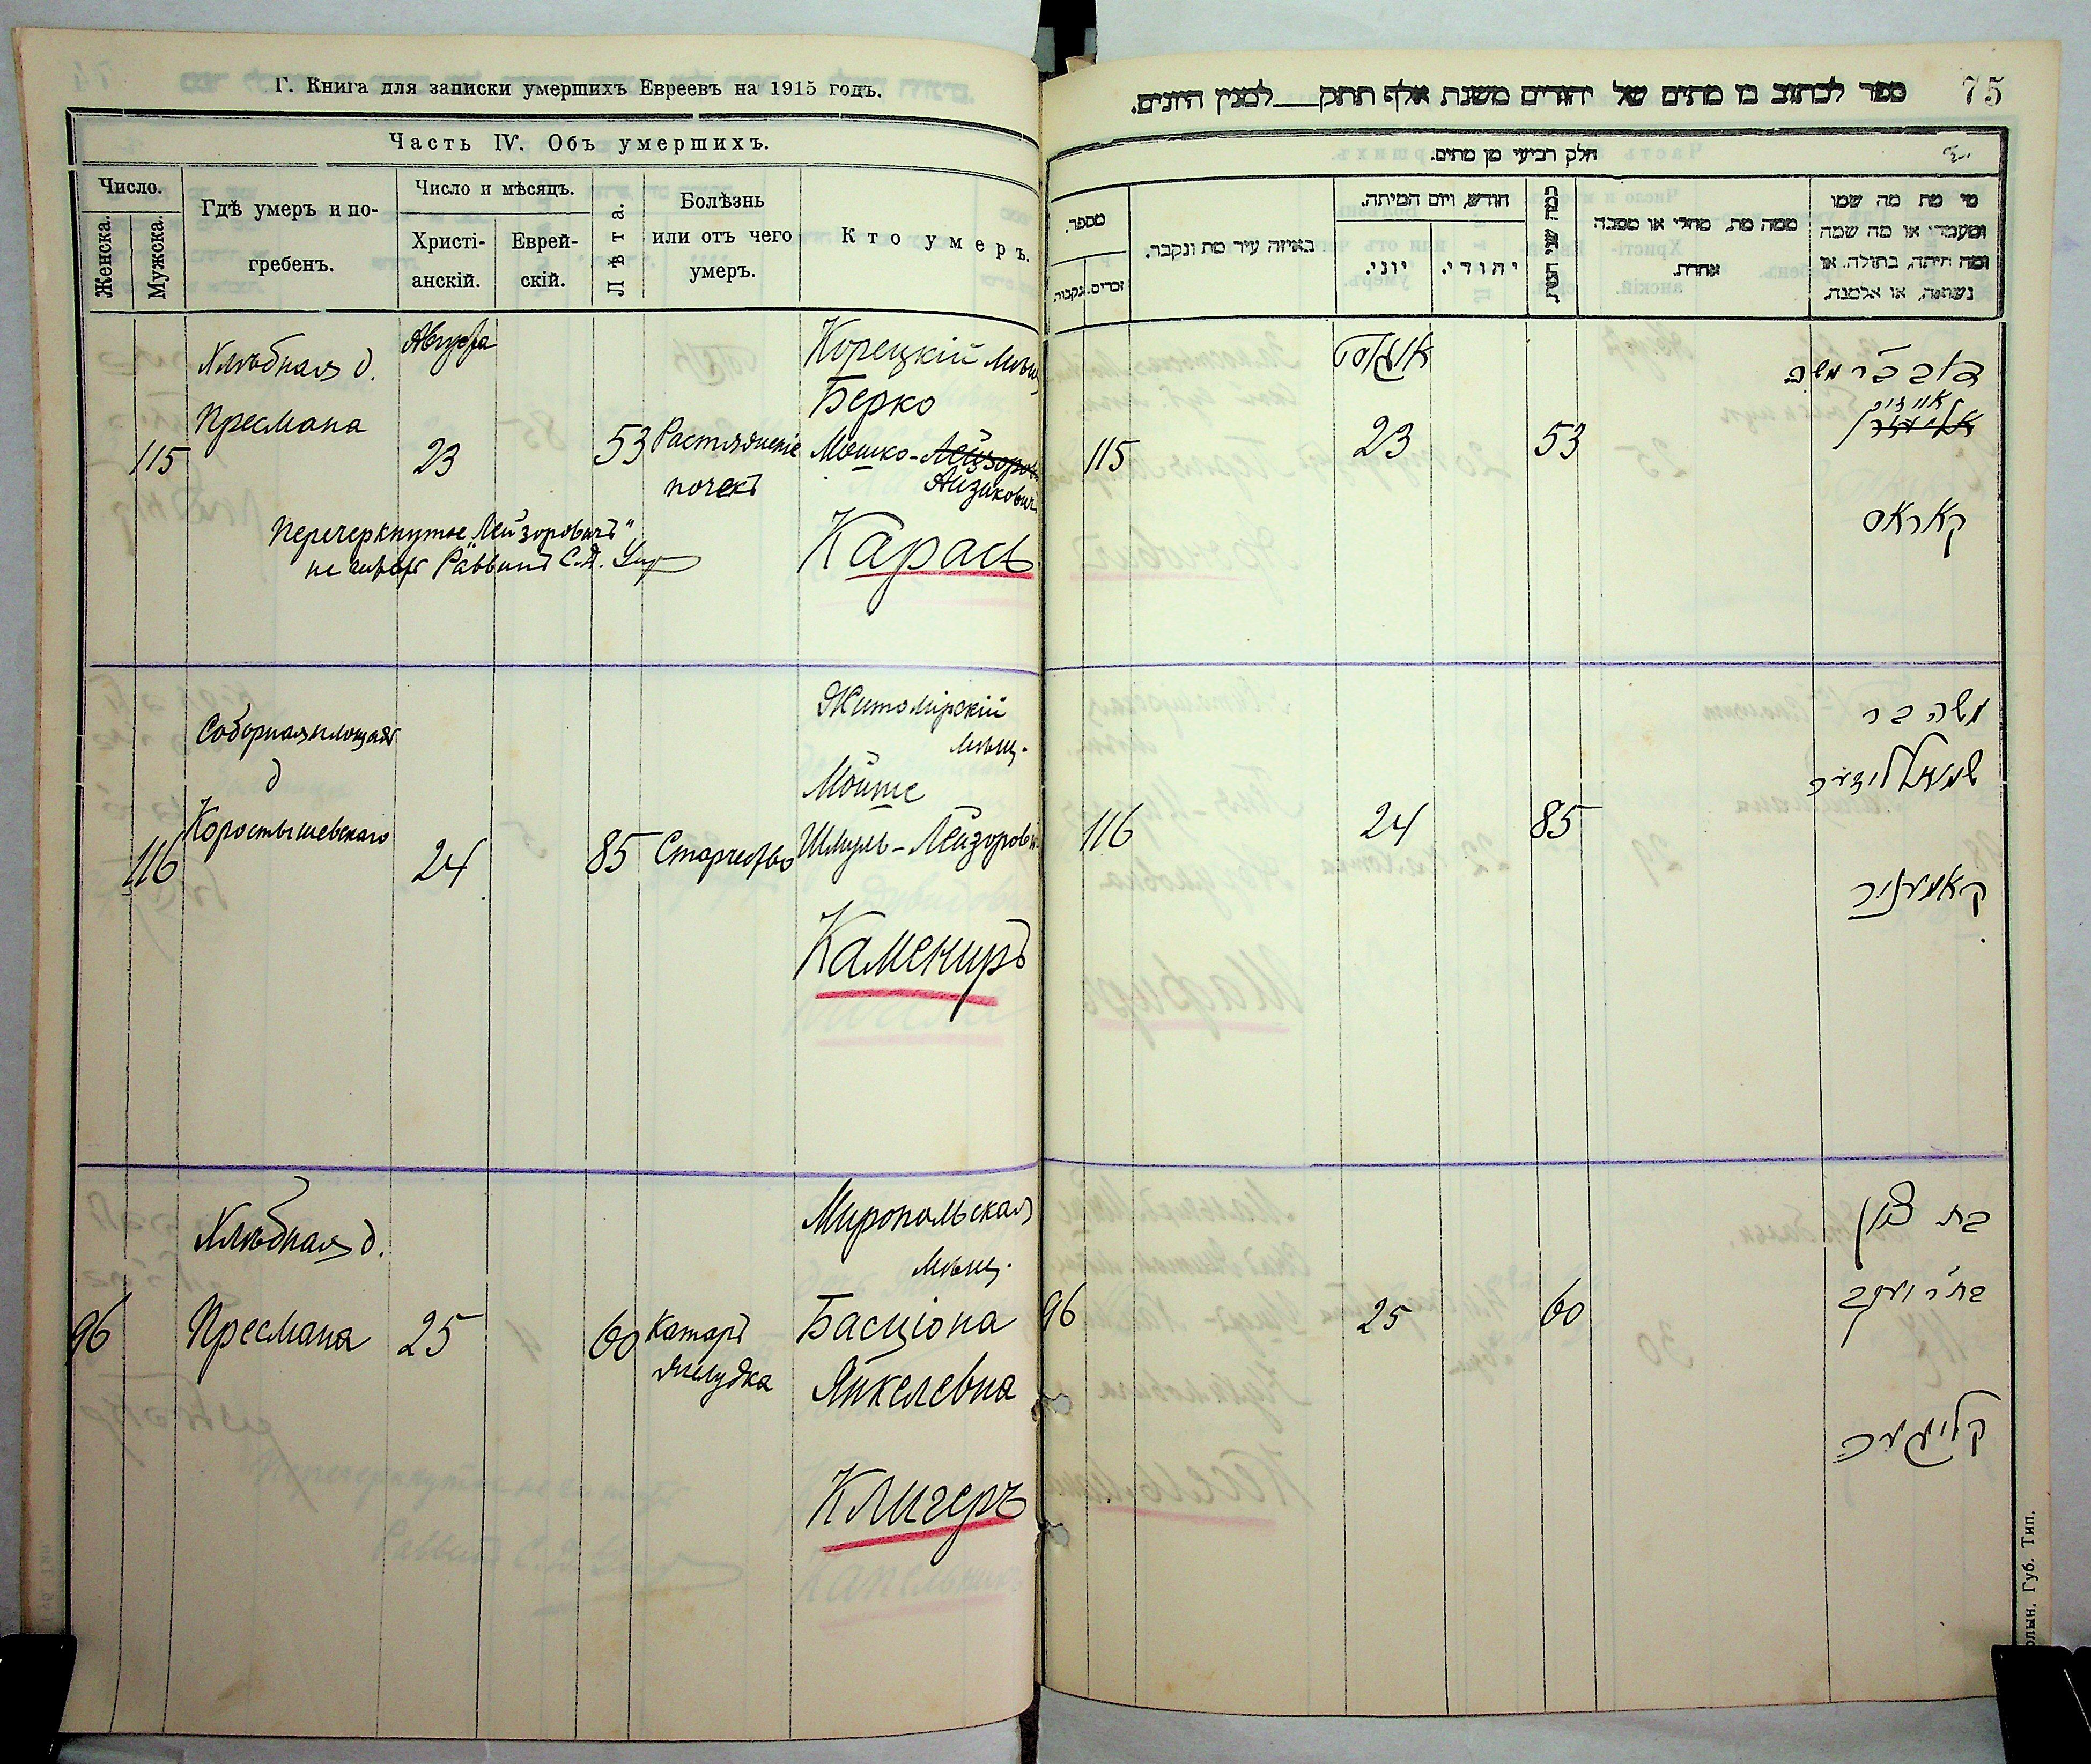 Г. Книга для записки умершихъ Евреевъ на 1915 годъ.
Часть IV. Объ умершихъ.
Число.
Женска.
Мужска.
Гдѣ умеръ и по-
гребенъ.
Число и мѣсяцъ.
Христі-
анскій.
Еврей-
скій.
Лѣта.
Болѣзнь
или отъ чего
умеръ.
Кто умеръ.
115
Хлѣбная д.
Пресмана
Августа
23
53
почекъ
Корецкій мѣщ
Берко
Мошко-Лейзоров
Айзикович
Карась
Перечеркнутое „Лейзоровичъ"
не читать Раввинъ С.А.
116
Соборная площадь
д
Коростышевскаго
24
85
Старчество
Житомірскій
мѣщ.
Мойше
Шмуль-Лейзорович
Камениръ
96
Хлѣбная д.
Пресмана
25
60
Катаръ
желудка
Миропольская
мѣщ.
Басціона
Янкелевна
Клигеръ
75
ספר לכתוב בו מתים של יהודים משנת אלף תתק___למנין היונים.
חלק רביעי מן מתים.
מספר.
זכרים.
נקבות
באיזה עיר מת ונקבר.
חודש, ויום המיתה.
יוני.
יהודי.
ממה מת, מחלי או מסבה
אחרת.
מי מת מה שמו
ומעמדו או מה שמה
ומה היתה, בתולה, או
נשואה, או אלמנה.
115
אוגוסט
23
53
קאראס
116
24
85
משה בר
שמואל ליזער
קאמעניר
96
25
60
בת ציון
בת ר יעקב
קליגער
Губ. Тип.